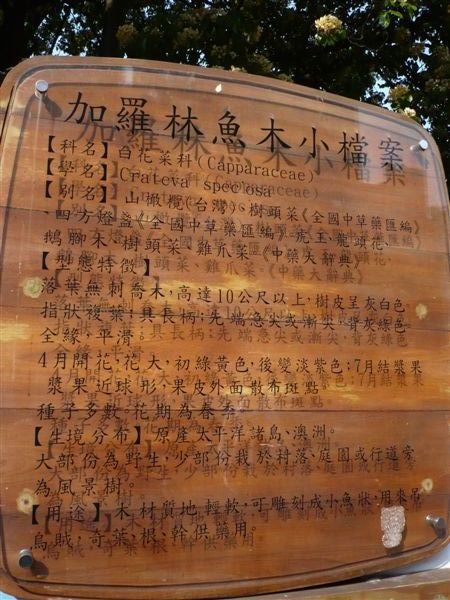 加羅林魚木小檔案
【科名】白花菜科(Capparaceae)
【學名】Crateva speciosa
【別名】山橄欖(台灣)、樹頭菜《全國中草藥匯編》
、四方燈盞《全國中草藥匯編》虎王、龍頭花、
鵝腳木、樹頭菜、雞爪菜《中藥大辭典》
【型態特徵】
落葉無刺喬木,高達10公尺以上,樹皮呈灰白色。
指狀複葉;具長柄;先端急尖或漸尖,背灰綠色。
全緣、平滑。
4月開花;花大,初綠黃色,後變淡紫色;7月結漿果
漿果近球形,果皮外面散布斑點。
種子多數。花期為春季。
【生境分布】原產太平洋諸島、澳洲。
大部份為野生;少部份栽於村落、庭園或行道旁
為風景樹。
【用途】木材質地輕軟,可雕刻成小魚狀,用來吊
烏賊,奇葉、根、幹供藥用。